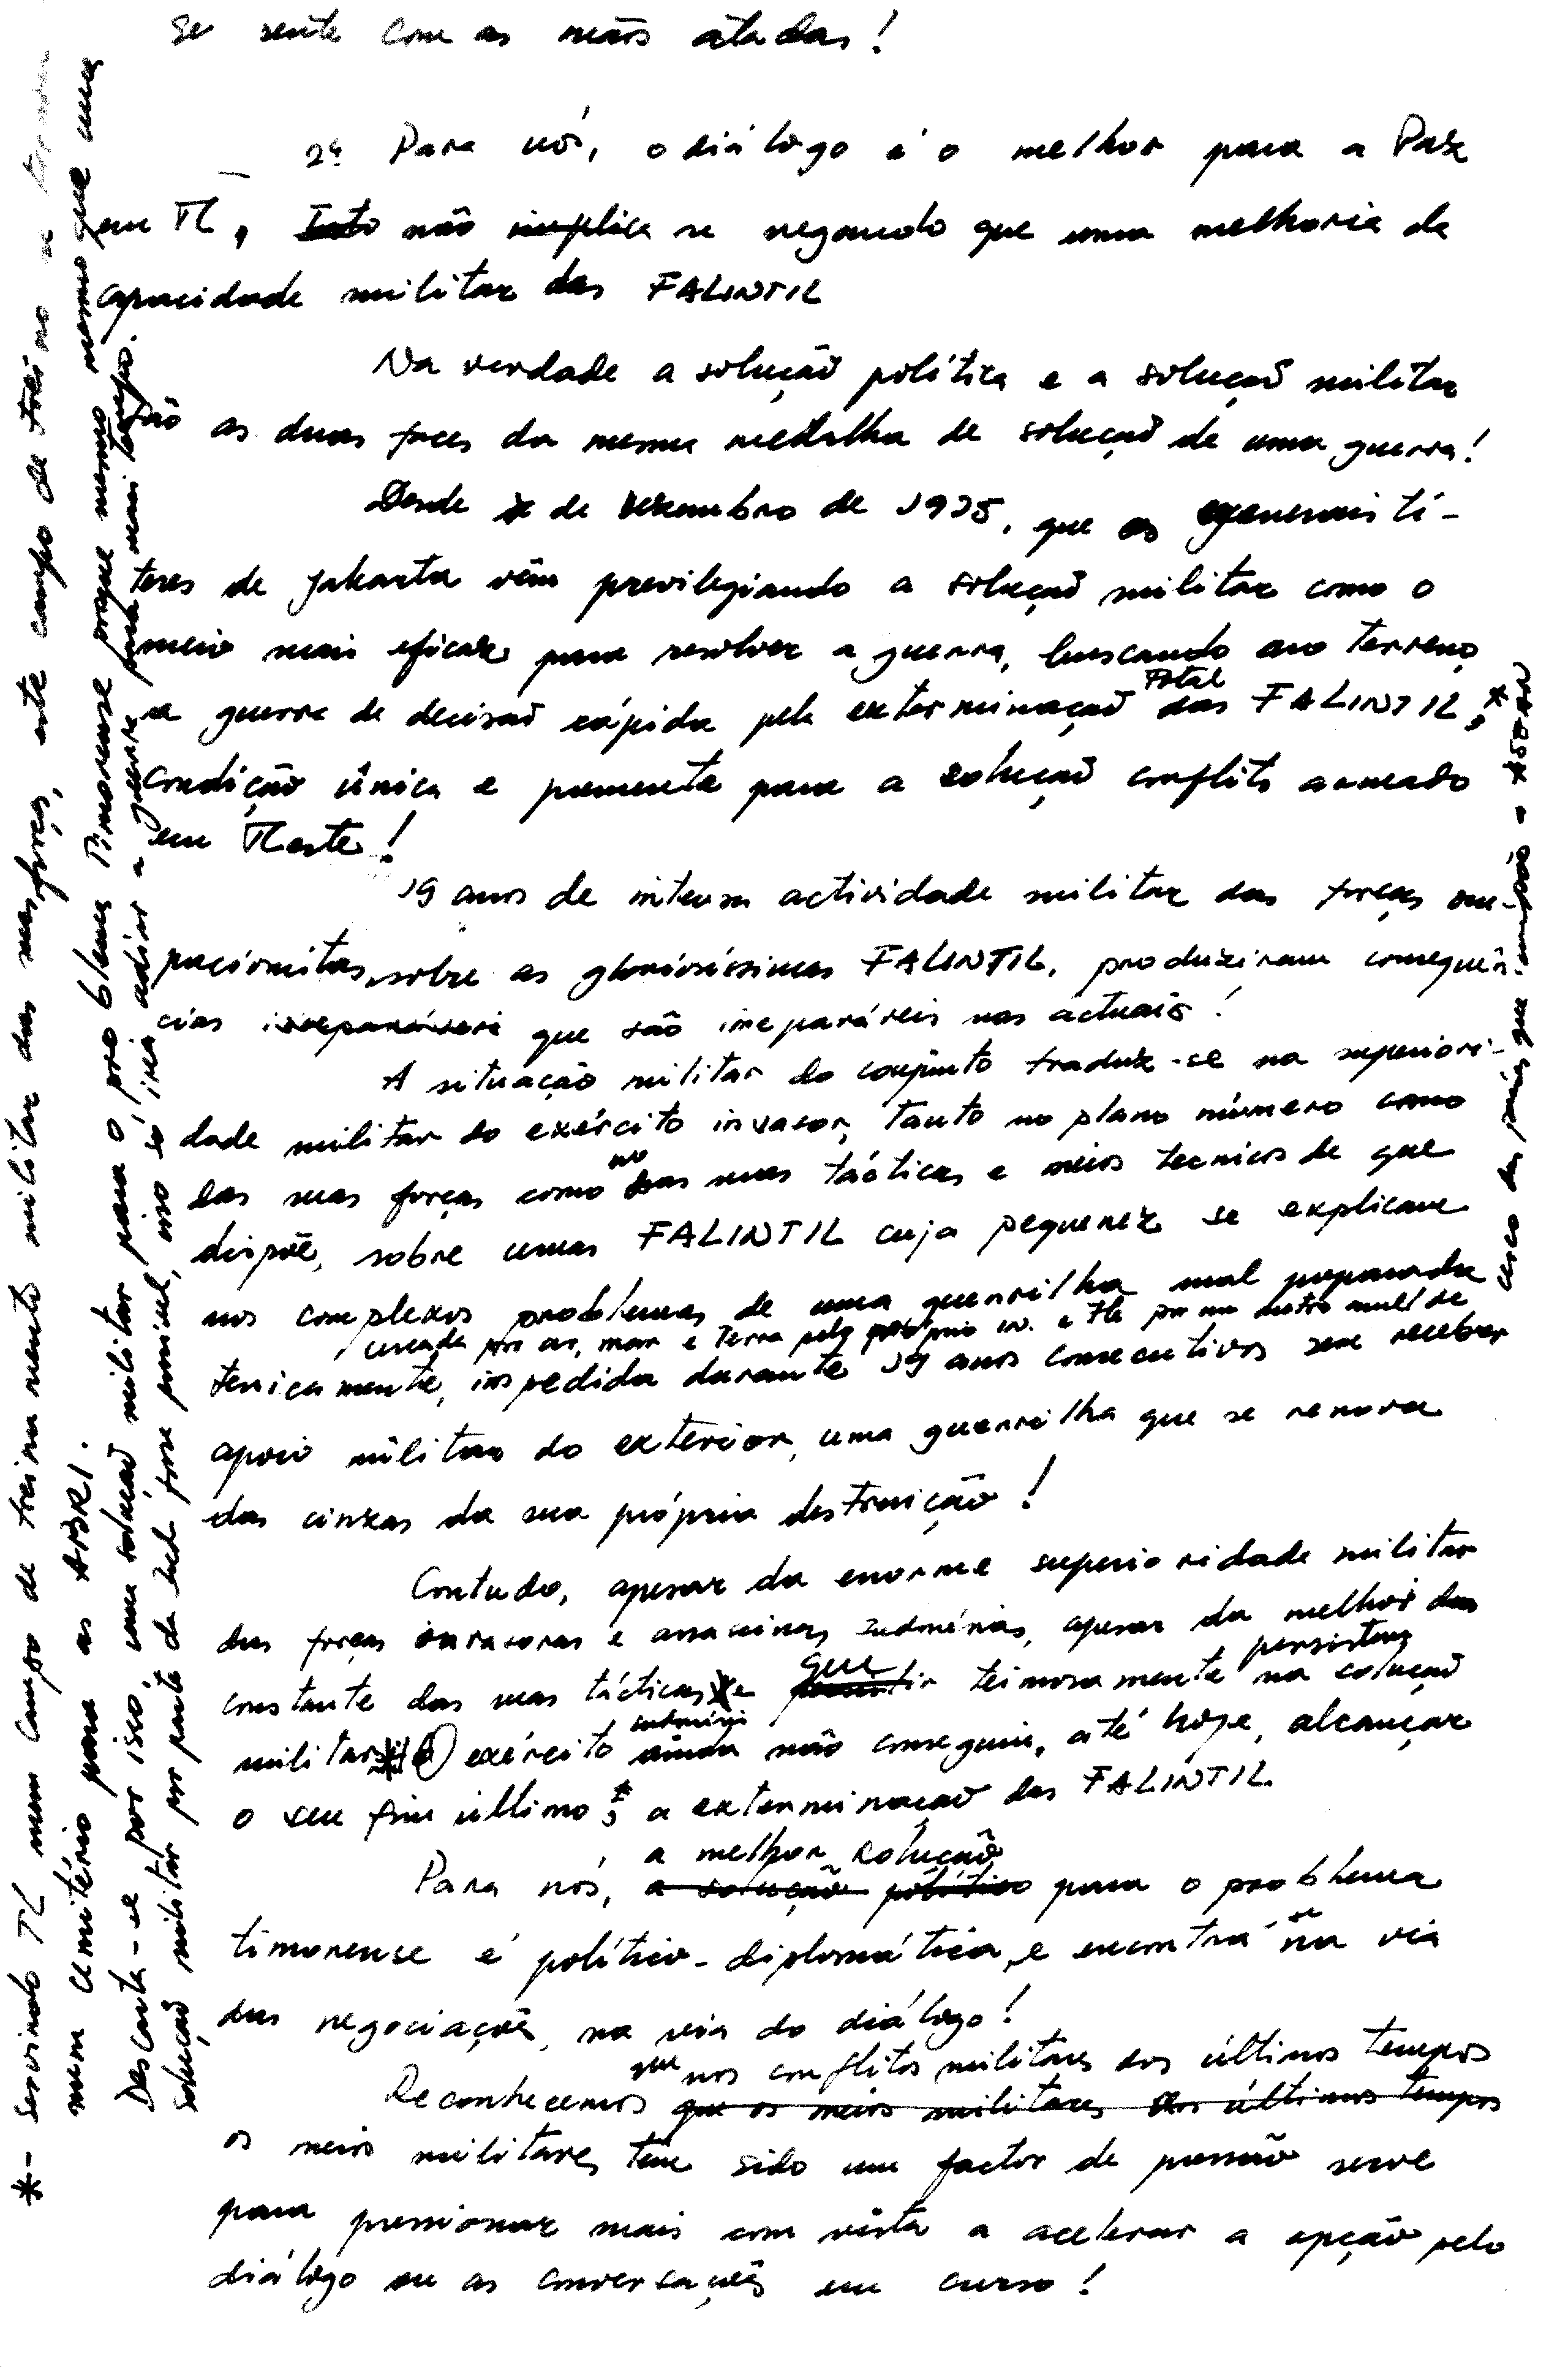 se sente com as mãos atadas!
2º Para nós, o diálogo é o melhor para a Paz
em TL, Isto não implica se negando que uma melhoria da
capacidade militar das FALINTIL
Na verdade a solução política e a solução militar
são as duas faces da mesma medalha de solução de uma guerra!
Desde de Dezembro de 1975, que os generais tí-
teres de Jakarta vêm previlegiando a solução militar como o
meio mais eficaz para resolver a guerra, buscando no terreno
a guerra de decisão rápida pela exterminação total das FALINTIL, *
condição única e premente para a solução conflito armado
em TLeste!
19 anos de intensa actividade militar das forças ocu-
pacionistas, sobre as gloriosíssimas FALINTIL, produziram consequên-
cias irreparáveis que são irreparáveis nas actuais!
A situação militar do conjunto traduz-se na superiori-
dade militar do exército invasor, tanto no plano número como
das suas forças como no das suas tácticas e meios tecnicos de que
dispõe, sobre umas FALINTIL cuja pequenez se explicam
nos complexos problemas de uma guerrilha mal preparada
cercada por ar, mar e terra pelo próprio in. e por um outro
tenicamente, impedida durante 19 anos consecutivos sem receber
apoio militar do exterior, uma guerrilha que se renova
das cinzas da sua própria destruição!
Contudo, apesar da enorme superioridade militar
das forças invasoras e assassinas indonésias, apesar da melhor das
constante das suas tácticas e que persistir teimosamente persistem na solução
militar, o exército indonési ainda não conseguiu, até hoje, alcançar
o seu fim último: a exterminação das FALINTIL
Para nós, a melhor solução a solução político para o problema
timorense é político-diplomática, e encontra-se na via
das negociações, na via do diálogo!
Reconhecemos que nos conflitos militares dos últimos tempos
que os meios militares dos últimos tempos
os meios militares tem sido um factor de pressão serve
para pressionar mais com vista a acelerar a opção pelo
diálogo ou as conversações em curso!
*- servindo TL num campo de treinamento militar das suas forças, este campo de treino a
num cemitério para as ABRI.
Descarta-se por isso, uma solução militar para o problema Timorense porque mesmo mesmo que uma
solução militar por parte da fosse possível, isso só iria adiar a guerra para mais tempo.
cerco dos países que - ASEAN